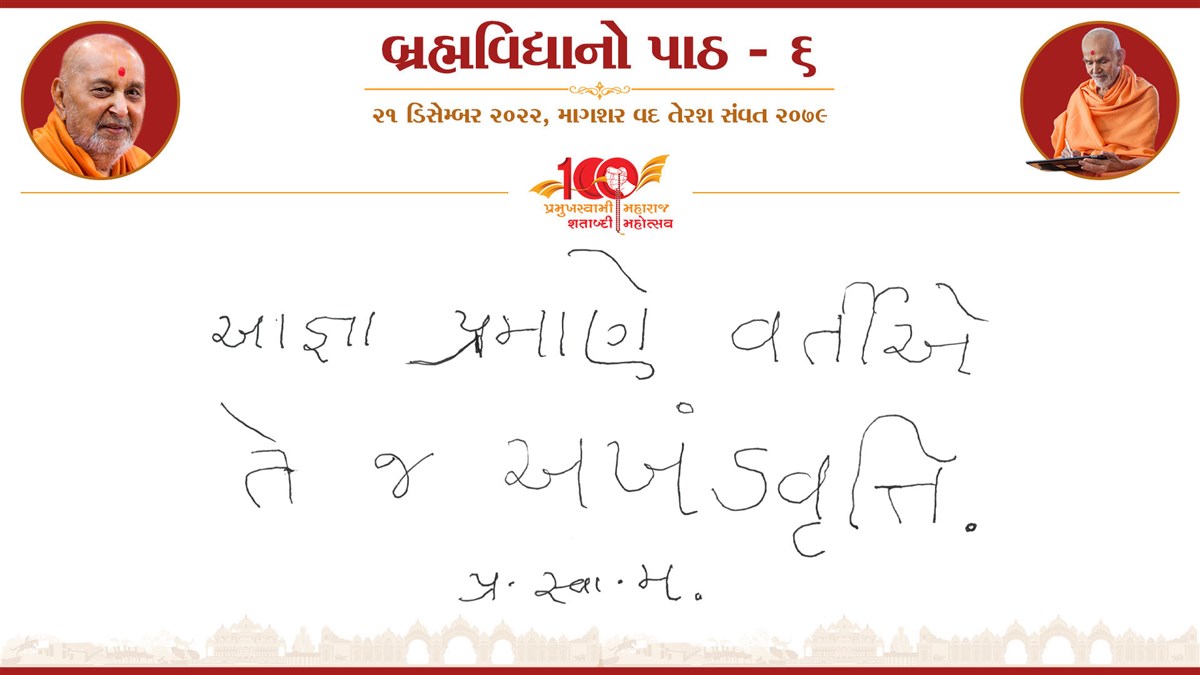 બ્રહ્મવિદ્યાનો પાઠ - ૬
૨૧ ડિસેમ્બર ૨૦૨૨, માગશર વદ તેરશ સંવત ૨૦૭૯
100
પ્રમુખસ્વામી મહારાજ
શતાબ્દી મહોત્સવ
આજ્ઞા પ્રમાણે વર્તીએ
તે જ અખંડવૃત્તિ.
પ્ર. સ્વા. મ.